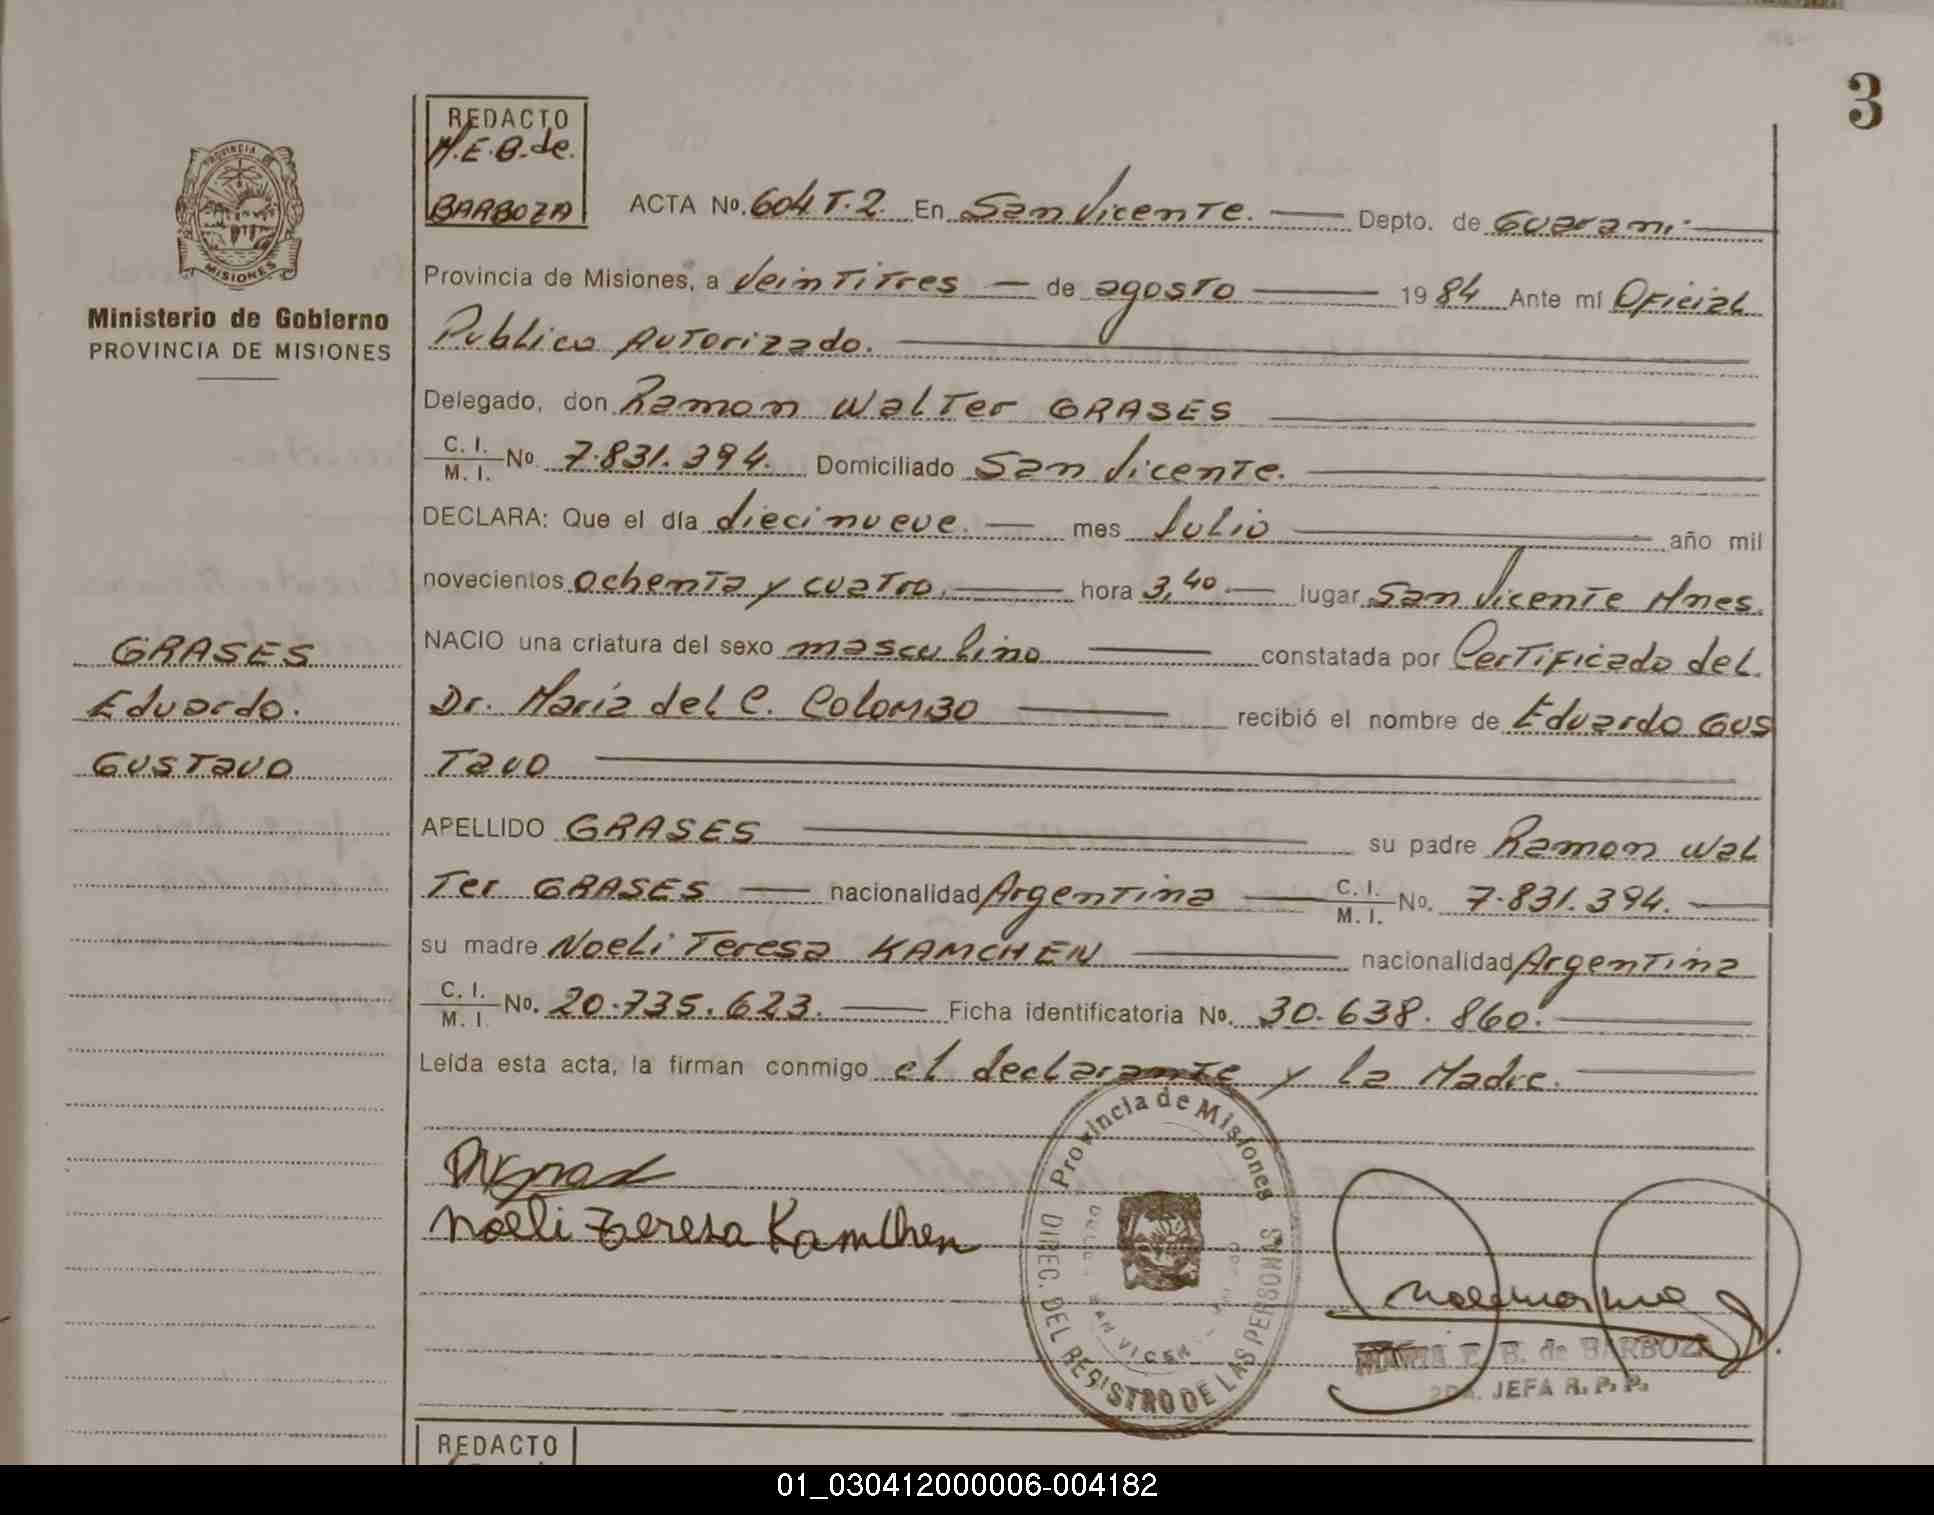 3
REDACTO
M.E.B. de.
BARBOZA
PROVINCIA DE
MISIONES
Ministerio de Gobierno
PROVINCIA DE MISIONES
ACTA No. 604 T.2 En San Vicente. Depto. de Guarani
Provincia de Misiones, a veintitres de agosto 1984 Ante mí Oficial
Publico Autorizado.
Delegado, don Ramon Walter GRASES
C. I. / M. I. No. 7.831.394. Domiciliado San Vicente.
DECLARA: Que el día diecinueve. mes Julio año mil
novecientos ochenta y cuatro. hora 3,40 lugar San Vicente Mnes.
NACIO una criatura del sexo masculino constatada por Certificado del
Dr. María del C. Colombo recibió el nombre de Eduardo Gus
tavo
APELLIDO GRASES su padre Ramon Wal
ter GRASES nacionalidad Argentina C. I. / M. I. No. 7.831.394.
su madre Noeli Teresa KAMCHEN nacionalidad Argentina
C. I. / M. I. No. 20.735.623. Ficha identificatoria No. 30.638.860.
Leída esta acta, la firman conmigo el declarante y la Madre.
GRASES
Eduardo.
Gustavo
Noeli Teresa Kamchen
Provincia de Misiones
DIREC. DEL REGISTRO DE LAS PERSONAS
MARIA E. B. de BARBOZA
2DA. JEFA R. P. P.
REDACTO
01_030412000006-004182